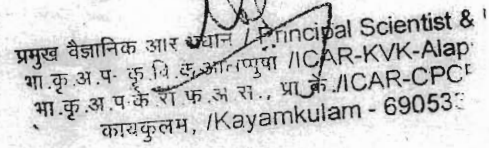 प्रमुख वैज्ञानिक आर प्रधान / Principal Scientist &
भा.कृ.अ.प- कृ.वि.के,आलप्पुषा /ICAR-KVK-Alap
भा.कृ.अ.प-के रो फ.अ सं., प्रा.के./ICAR-CPC
कायंकुलम, /Kayamkulam - 69053